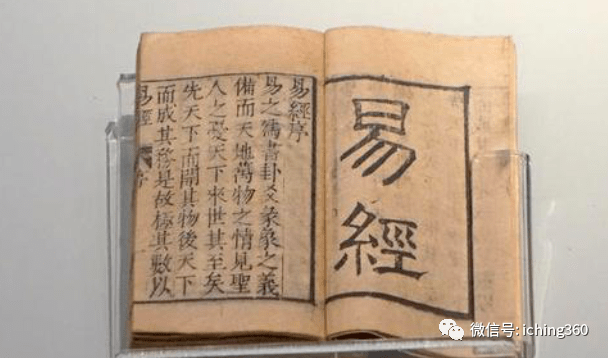 易經
易經序
易之為書卦爻彖象之義
備而天地萬物之情見聖
人之憂天下來世其至矣
先天下而開其物後天下
而成其務是故極其數以
易經 序
微信号: iching360